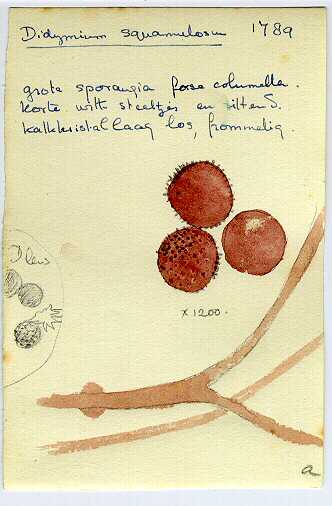 Didymium squamulosum 1789
grote sporangia forse columella.
korte witte steeltjes en zittend.
kalkkristal laag los, krommelig.
x1200.
a